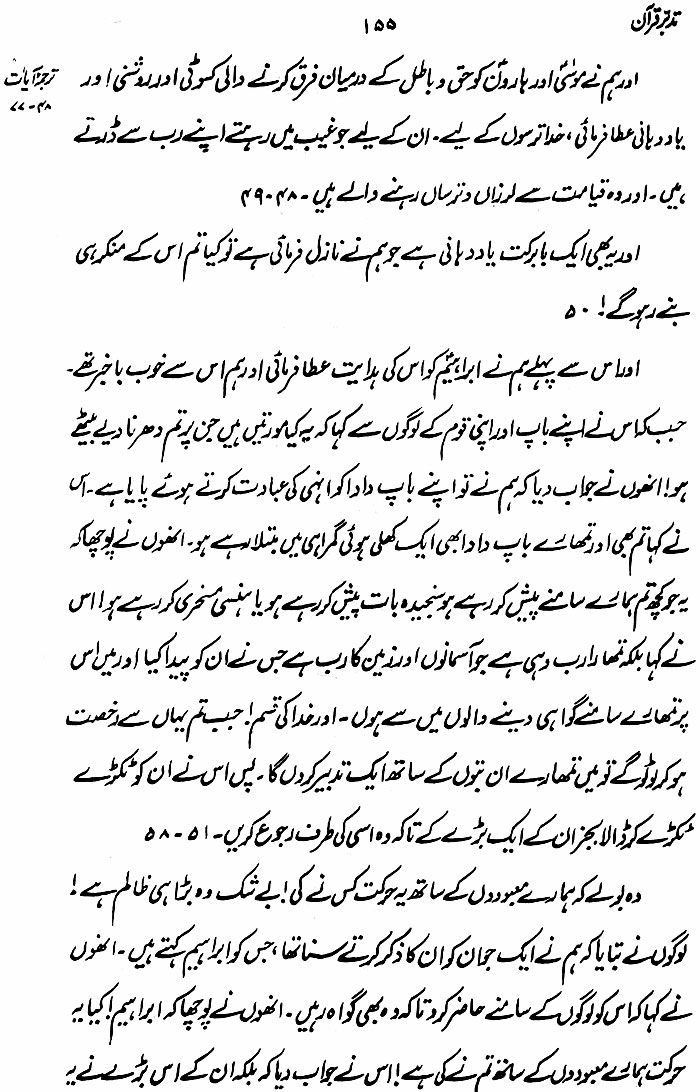 تدبرِ قرآن
۱۵۵
ترجمۂ آیات
۴۸-۷۷
اور ہم نے موسیٰؑ اور ہارونؑ کو حق و باطل کے درمیان فرق کرنے والی کسوٹی اور روشنی اور
یاددہانی عطا فرمائی، خدا ترسوں کے لیے۔ ان کے لیے جو غیب میں رہتے اپنے رب سے ڈرتے
ہیں۔ اور وہ قیامت سے لرزاں و ترساں رہنے والے ہیں۔ ۴۸-۴۹
اور یہ بھی ایک بابرکت یاددہانی ہے جو ہم نے نازل فرمائی ہے تو کیا تم اس کے منکر ہی
بنے رہو گے! ۵۰
اور اس سے پہلے ہم نے ابراہیمؑ کو اس کی ہدایت عطا فرمائی اور ہم اس سے خوب باخبر تھے۔
جب کہ اس نے اپنے باپ اور اپنی قوم کے لوگوں سے کہا کہ یہ کیا مورتیں ہیں جن پر تم دھرنا دیے بیٹھے
ہو! انھوں نے جواب دیا کہ ہم نے تو اپنے باپ دادا کو انہی کی عبادت کرتے ہوئے پایا ہے۔ اس
نے کہا تم بھی اور تمھارے باپ دادا بھی ایک کھلی ہوئی گمراہی میں مبتلا رہے ہو۔ انھوں نے پوچھا کہ
یہ جو کچھ تم ہمارے سامنے پیش کر رہے ہو سنجیدہ بات پیش کر رہے ہو یا ہنسی مسخری کر رہے ہو! اس
نے کہا بلکہ تمھارا رب وہی ہے جو آسمانوں اور زمین کا رب ہے جس نے ان کو پیدا کیا اور میں اس
پر تمھارے سامنے گواہی دینے والوں میں سے ہوں۔ اور خدا کی قسم! جب تم یہاں سے رخصت
ہو کر لوٹو گے تو میں تمھارے ان بتوں کے ساتھ ایک تدبیر کروں گا۔ پس اس نے ان کو ٹکڑے
ٹکڑے کر ڈالا بجز ان کے ایک بڑے کے تاکہ وہ اسی کی طرف رجوع کریں۔ ۵۱-۵۸
وہ بولے کہ ہمارے معبودوں کے ساتھ یہ حرکت کس نے کی! بے شک وہ بڑا ہی ظالم ہے!
لوگوں نے بتایا کہ ہم نے ایک جوان کو ان کا ذکر کرتے سنا تھا، جس کو ابراہیم کہتے ہیں۔ انھوں
نے کہا کہ اس کو لوگوں کے سامنے حاضر کرو تاکہ وہ بھی گواہ رہیں۔ انھوں نے پوچھا کہ ابراہیم! کیا یہ
حرکت ہمارے معبودوں کے ساتھ تم نے کی ہے! اس نے جواب دیا کہ بلکہ ان کے اس بڑے نے یہ